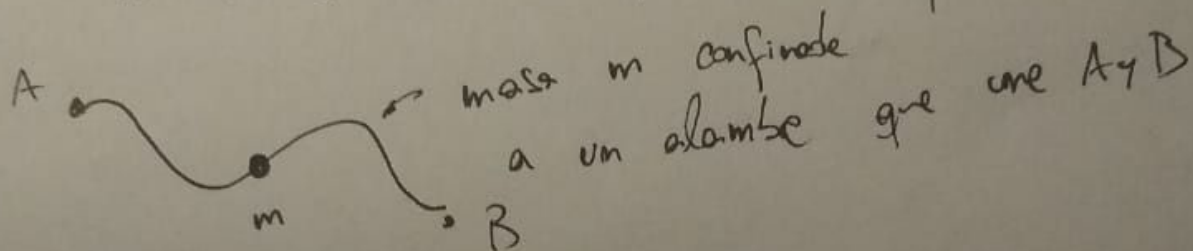 A
masa m confinada
a un alambe que une A y B
m
B